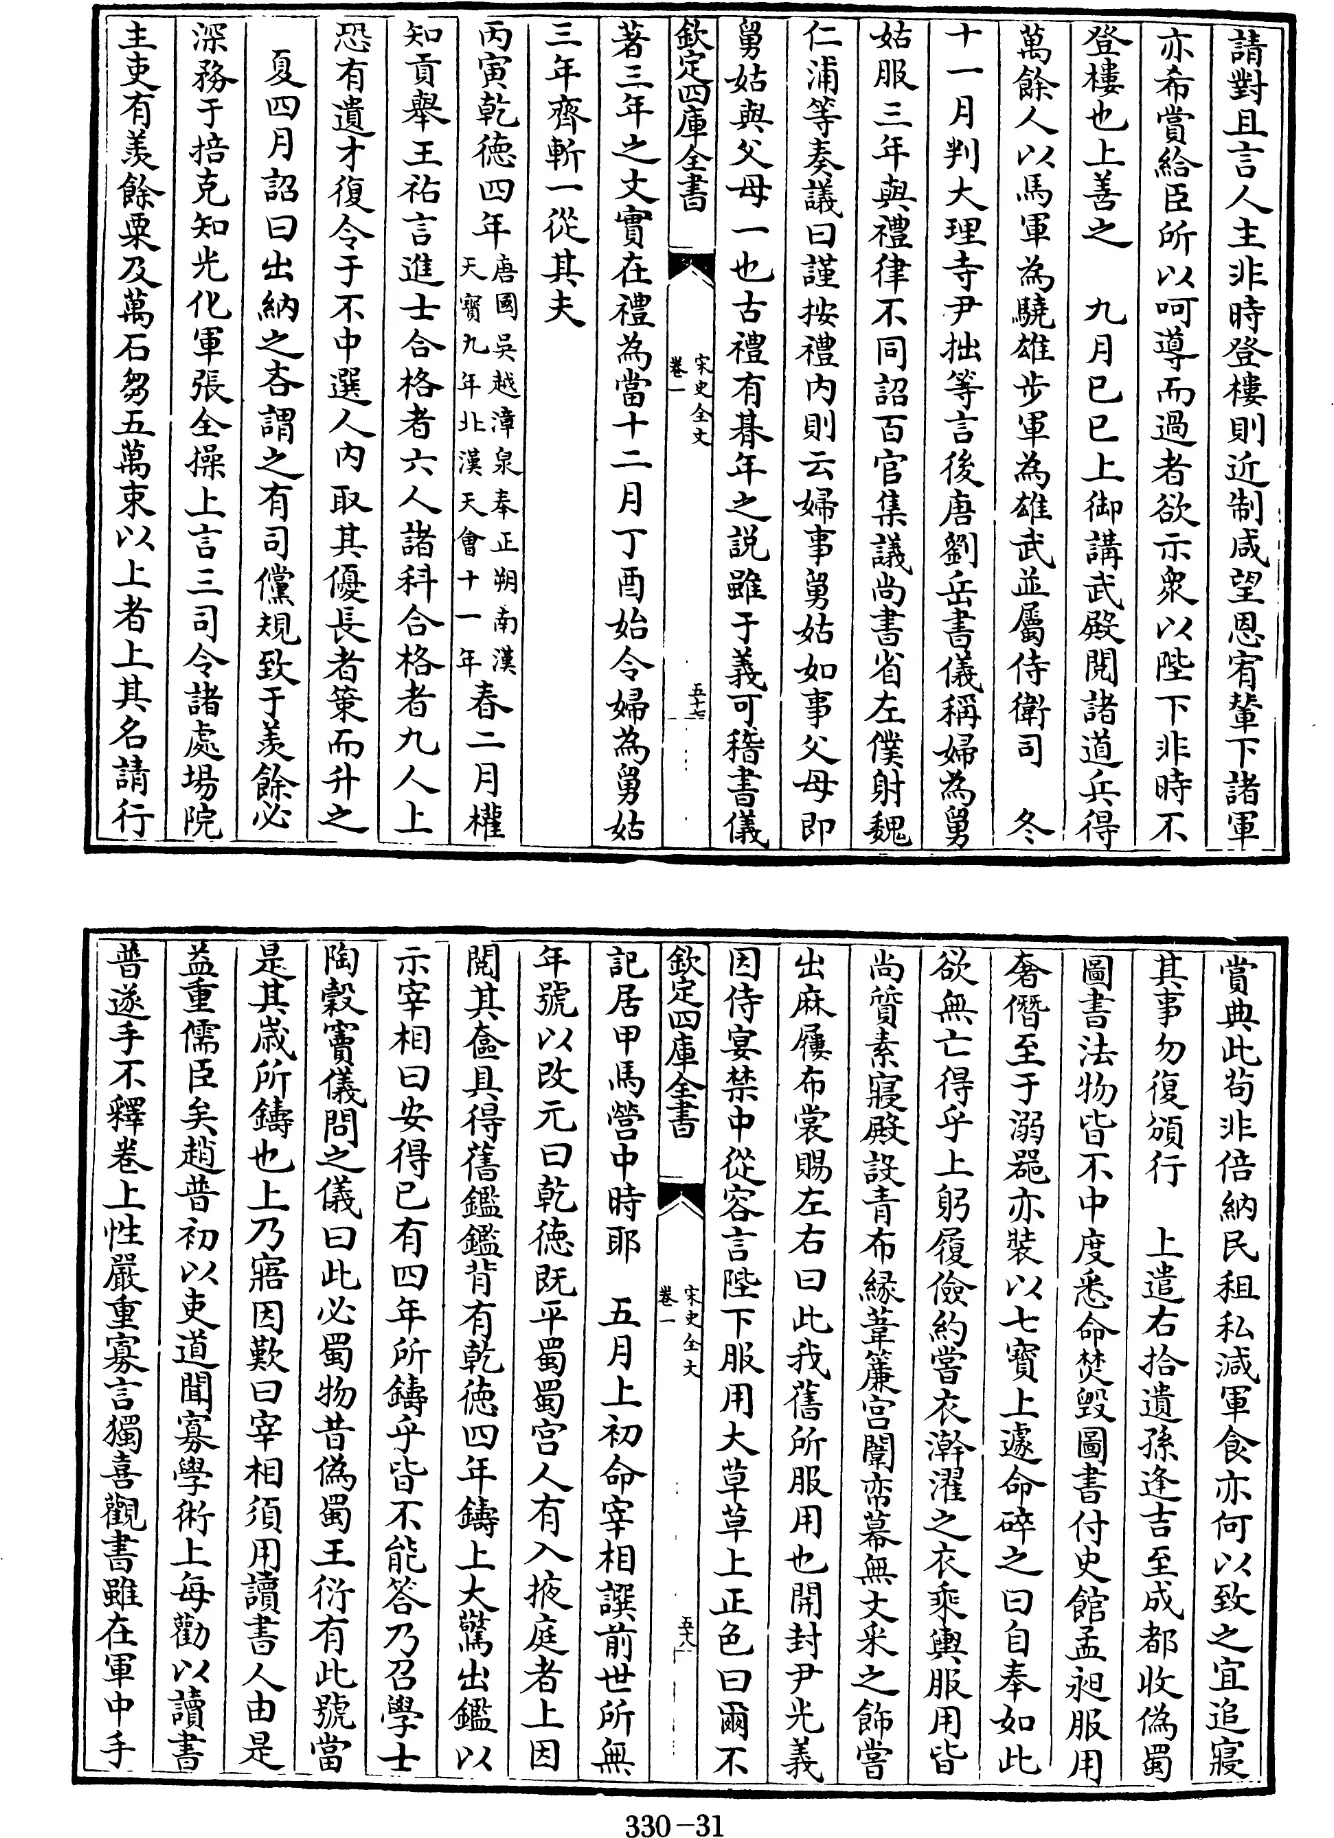 請對且言人主非時登樓則近制咸望恩宥輦下諸軍
亦希賞給臣所以呵導而過者欲示衆以陛下非時不
登樓也上善之　九月已巳上御講武殿閱諸道兵得
萬餘人以馬軍為驍雄步軍為雄武並屬侍衛司　冬
十一月判大理寺尹拙等言後唐劉岳書儀稱婦為舅
姑服三年與禮律不同詔百官集議尚書省左僕射魏
仁浦等奏議曰謹按禮內則云婦事舅姑如事父母即
舅姑與父母一也古禮有朞年之說雖于義可稽書儀
欽定四庫全書
宋史全文
卷一
五十七
著三年之文實在禮為當十二月丁酉始令婦為舅姑
三年齊斬一從其夫
丙寅乾德四年唐國吳越漳泉奉正朔南漢
天寶九年北漢天會十一年春二月權
知貢舉王祐言進士合格者六人諸科合格者九人上
恐有遺才復令于不中選人內取其優長者策而升之
夏四月詔曰出納之吝謂之有司儻規致于羨餘必
深務于掊克知光化軍張全操上言三司令諸處場院
主吏有羨餘粟及萬石芻五萬束以上者上其名請行
賞典此茍非倍納民租私減軍食亦何以致之宜追寢
其事勿復頒行　上遣右拾遺孫逢吉至成都收偽蜀
圖書法物皆不中度悉命焚毀圖書付史館孟昶服用
奢僭至于溺器亦裝以七寶上遽命碎之曰自奉如此
欲無亡得乎上躬履儉約嘗衣澣濯之衣乘輿服用皆
尚質素寢殿設青布緣葦簾宮闈帟幕無文采之飾嘗
出麻屨布裳賜左右曰此我舊所服用也開封尹光義
因侍宴禁中從容言陛下服用大草草上正色曰爾不
欽定四庫全書
宋史全文
卷一
五十八
記居甲馬營中時耶　五月上初命宰相譔前世所無
年號以改元曰乾德既平蜀蜀宮人有入掖庭者上因
閱其奩具得舊鑑鑑背有乾德四年鑄上大驚出鑑以
示宰相曰安得已有四年所鑄乎皆不能答乃召學士
陶穀竇儀問之儀曰此必蜀物昔偽蜀王衍有此號當
是其歲所鑄也上乃寤因歎曰宰相須用讀書人由是
益重儒臣矣趙普初以吏道聞寡學術上每勸以讀書
普遂手不釋卷上性嚴重寡言獨喜觀書雖在軍中手
330-31